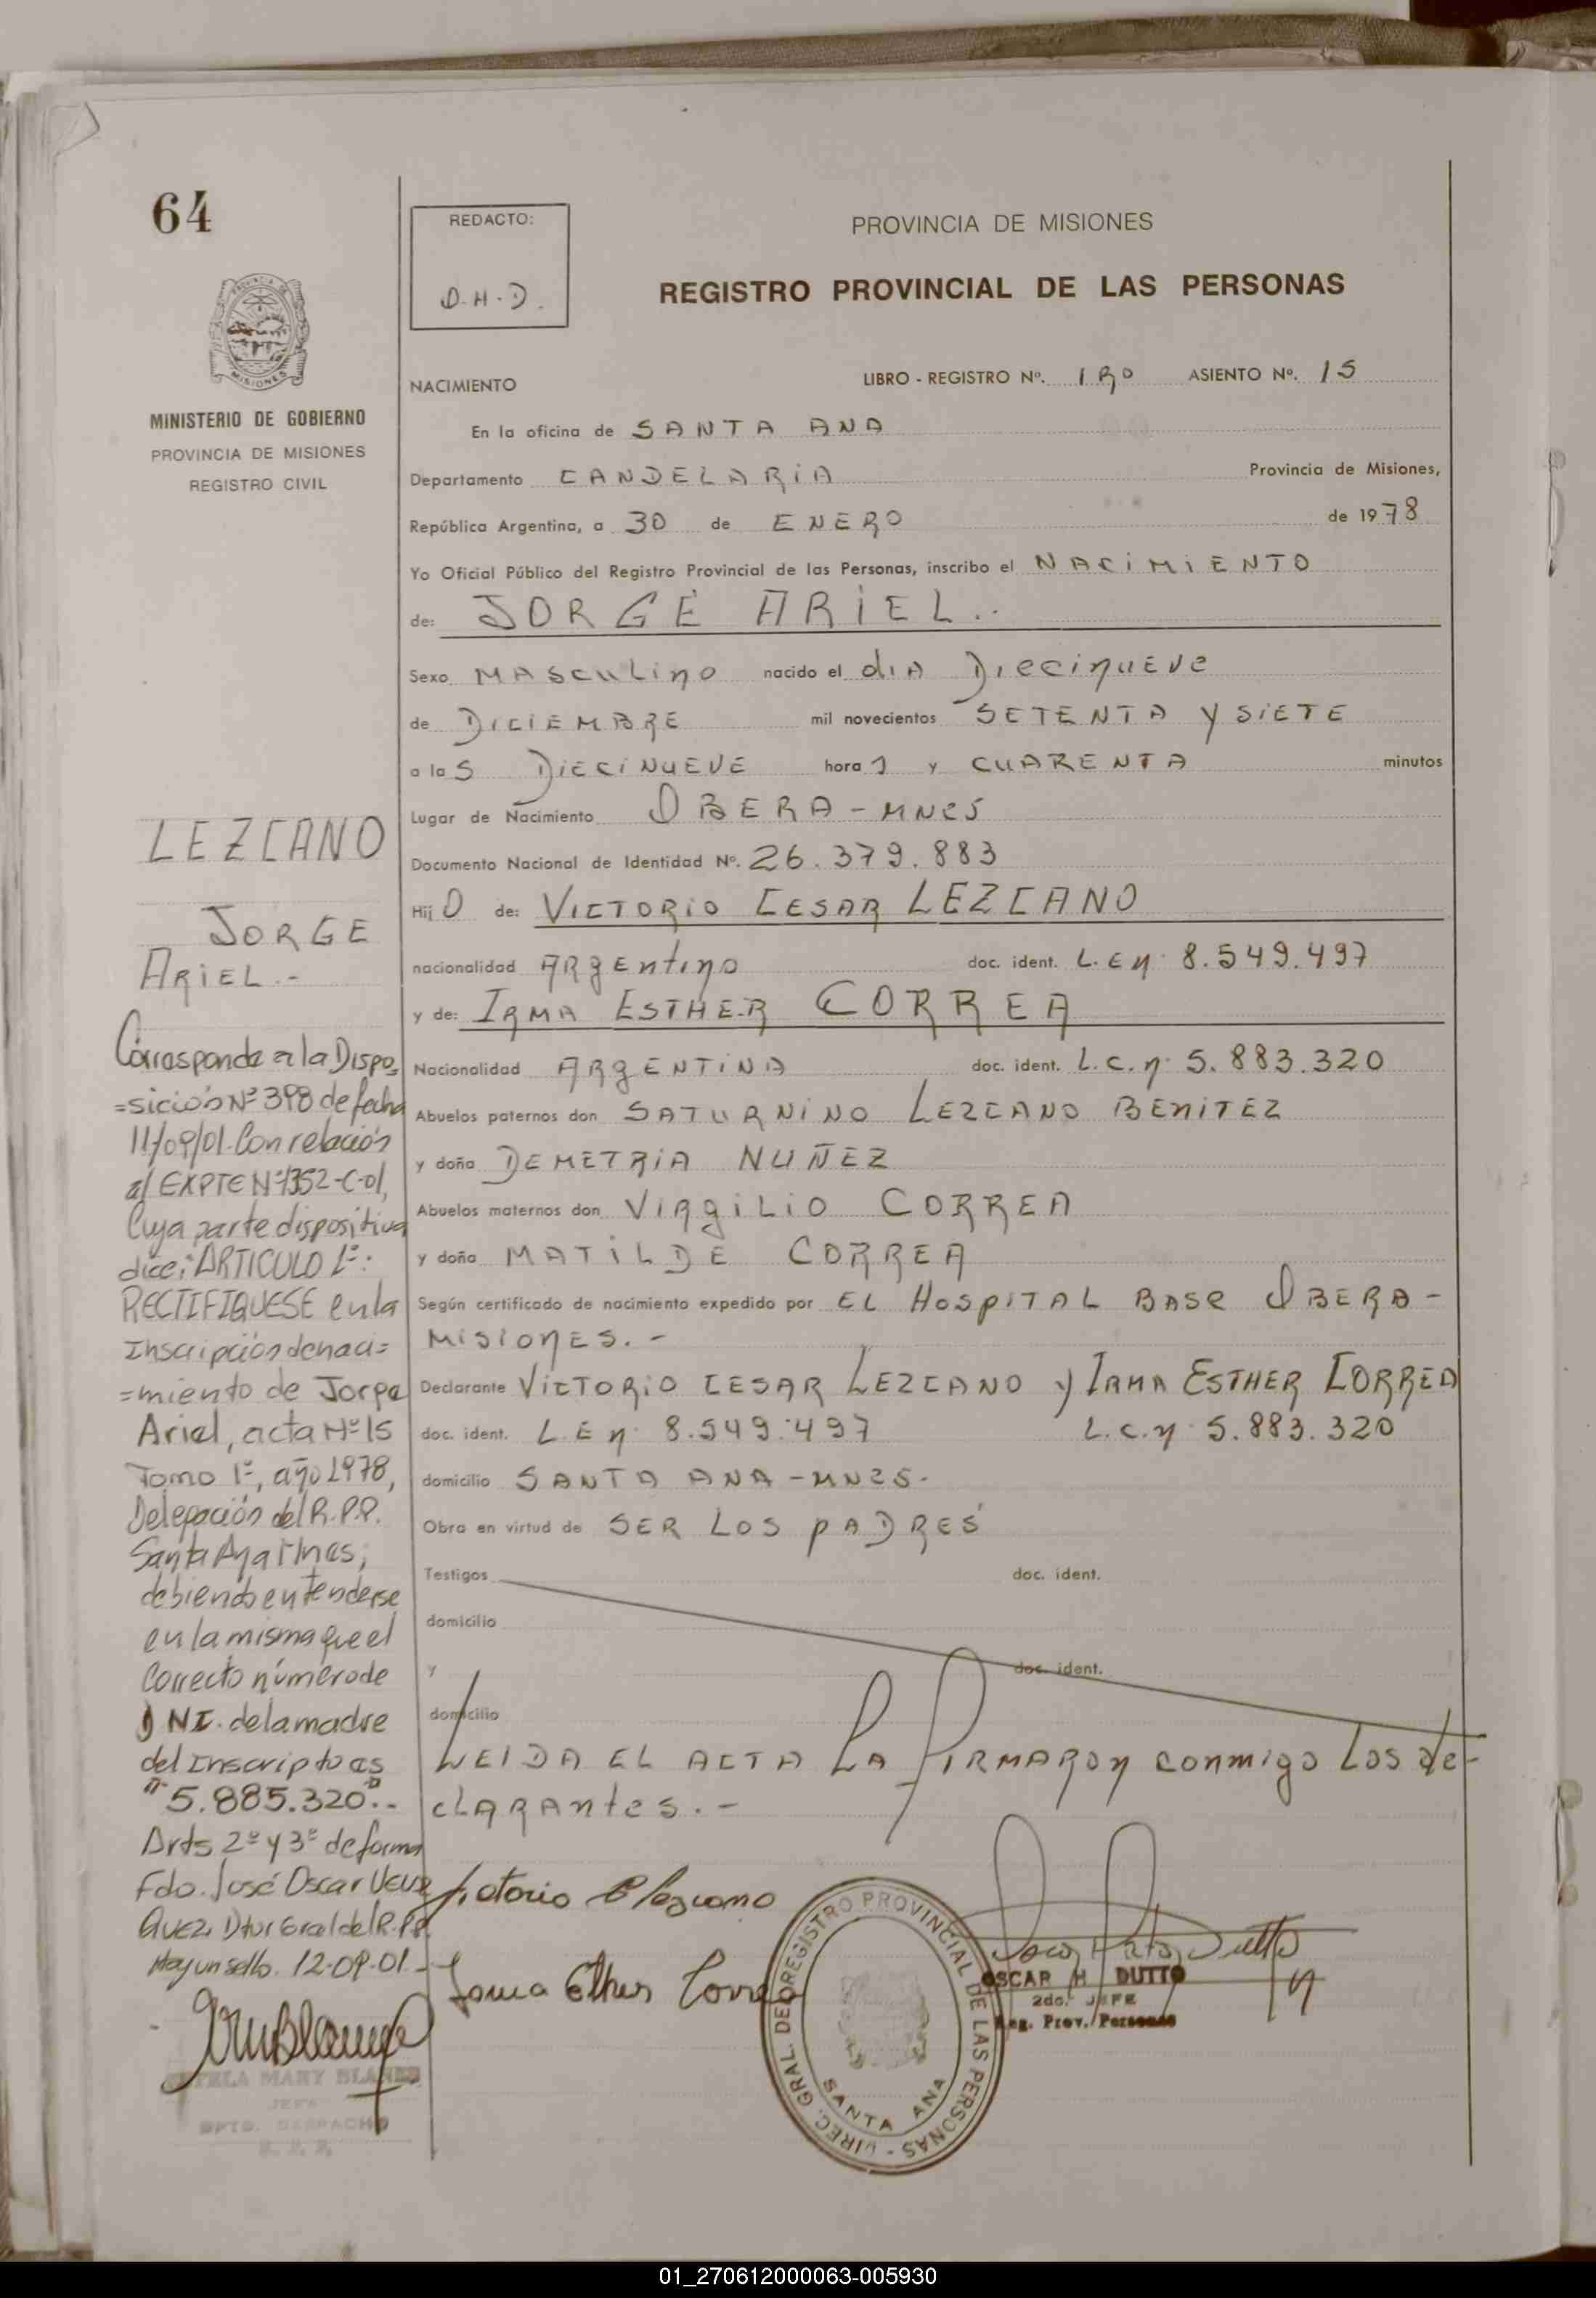 64
REDACTO:
O.H.D.
PROVINCIA DE MISIONES
REGISTRO PROVINCIAL DE LAS PERSONAS
MISIONES
MINISTERIO DE GOBIERNO
PROVINCIA DE MISIONES
REGISTRO CIVIL
NACIMIENTO
LIBRO - REGISTRO Nº. 1RO ASIENTO Nº. 15
En la oficina de SANTA ANA
Departamento CANDELARIA Provincia de Misiones,
República Argentina, a 30 de ENERO de 1978
Yo Oficial Público del Registro Provincial de las Personas, inscribo el NACIMIENTO
de: JORGE ARIEL..
Sexo MASCULINO nacido el dIA DIECINUEVE
de DICIEMBRE mil novecientos SETENTA Y SIETE
a las DIECINUEVE horas y CUARENTA minutos
Lugar de Nacimiento OBERA - MNES
Documento Nacional de Identidad Nº. 26.379.883
Hijo de: VICTORIO CESAR LEZCANO
nacionalidad ARGENTINO doc. ident. L.E Nº 8.549.497
y de: IRMA ESTHER CORREA
Nacionalidad ARGENTINA doc. ident. L.C. Nº 5.883.320
Abuelos paternos don SATURNINO LEZCANO BENITEZ
y doña DEMETRIA NUÑEZ
Abuelos maternos don VIRGILIO CORREA
y doña MATILDE CORREA
Según certificado de nacimiento expedido por EL HOSPITAL BASE OBERA -
MISIONES. -
Declarante VICTORIO CESAR LEZCANO y IRMA ESTHER CORREA
doc. ident. L.E Nº 8.549.497 L.C. Nº 5.883.320
domicilio SANTA ANA - MNES.
Obra en virtud de SER LOS PADRES
Testigos doc. ident.
domicilio
y doc. ident.
domicilio
LEIDA EL ACTA LA FIRMARON conmigo Los de-
clarantes. -
LEZCANO
JORGE
ARIEL.-
Corresponde a la Dispo
=sición Nº 398 de fecha
11/09/01. Con relación
al EXPTE Nº 1352-C-01,
Cuya parte dispositiva
dice: ARTICULO 1º:
RECTIFIQUESE en la
Inscripción de naci=
=miento de Jorge
Ariel, acta Nº 15
Tomo 1º, año 1978,
Delegación del R.P.P.
Santa Ana Mnes,
debiendo entenderse
en la misma que el
Correcto número de
DNI. de la madre
del Inscripto es
"5.885.320"..
Arts 2º y 3º de forma
Fdo. José Oscar Velaz
quez. Dtor Gral del R.P.P.
Hay un sello. 12-09-01.-
MARY BLANES
JEFA
DPTO. DESPACHO
R. P. P.
Victorio C Lezcano
Irma Esther Correa
DIREC. GRAL. DEL REGISTRO PROVINCIAL DE LAS PERSONAS -
SANTA ANA
OSCAR H DUTTO
2do. JEFE
Reg. Prov. Personas
01_270612000063-005930